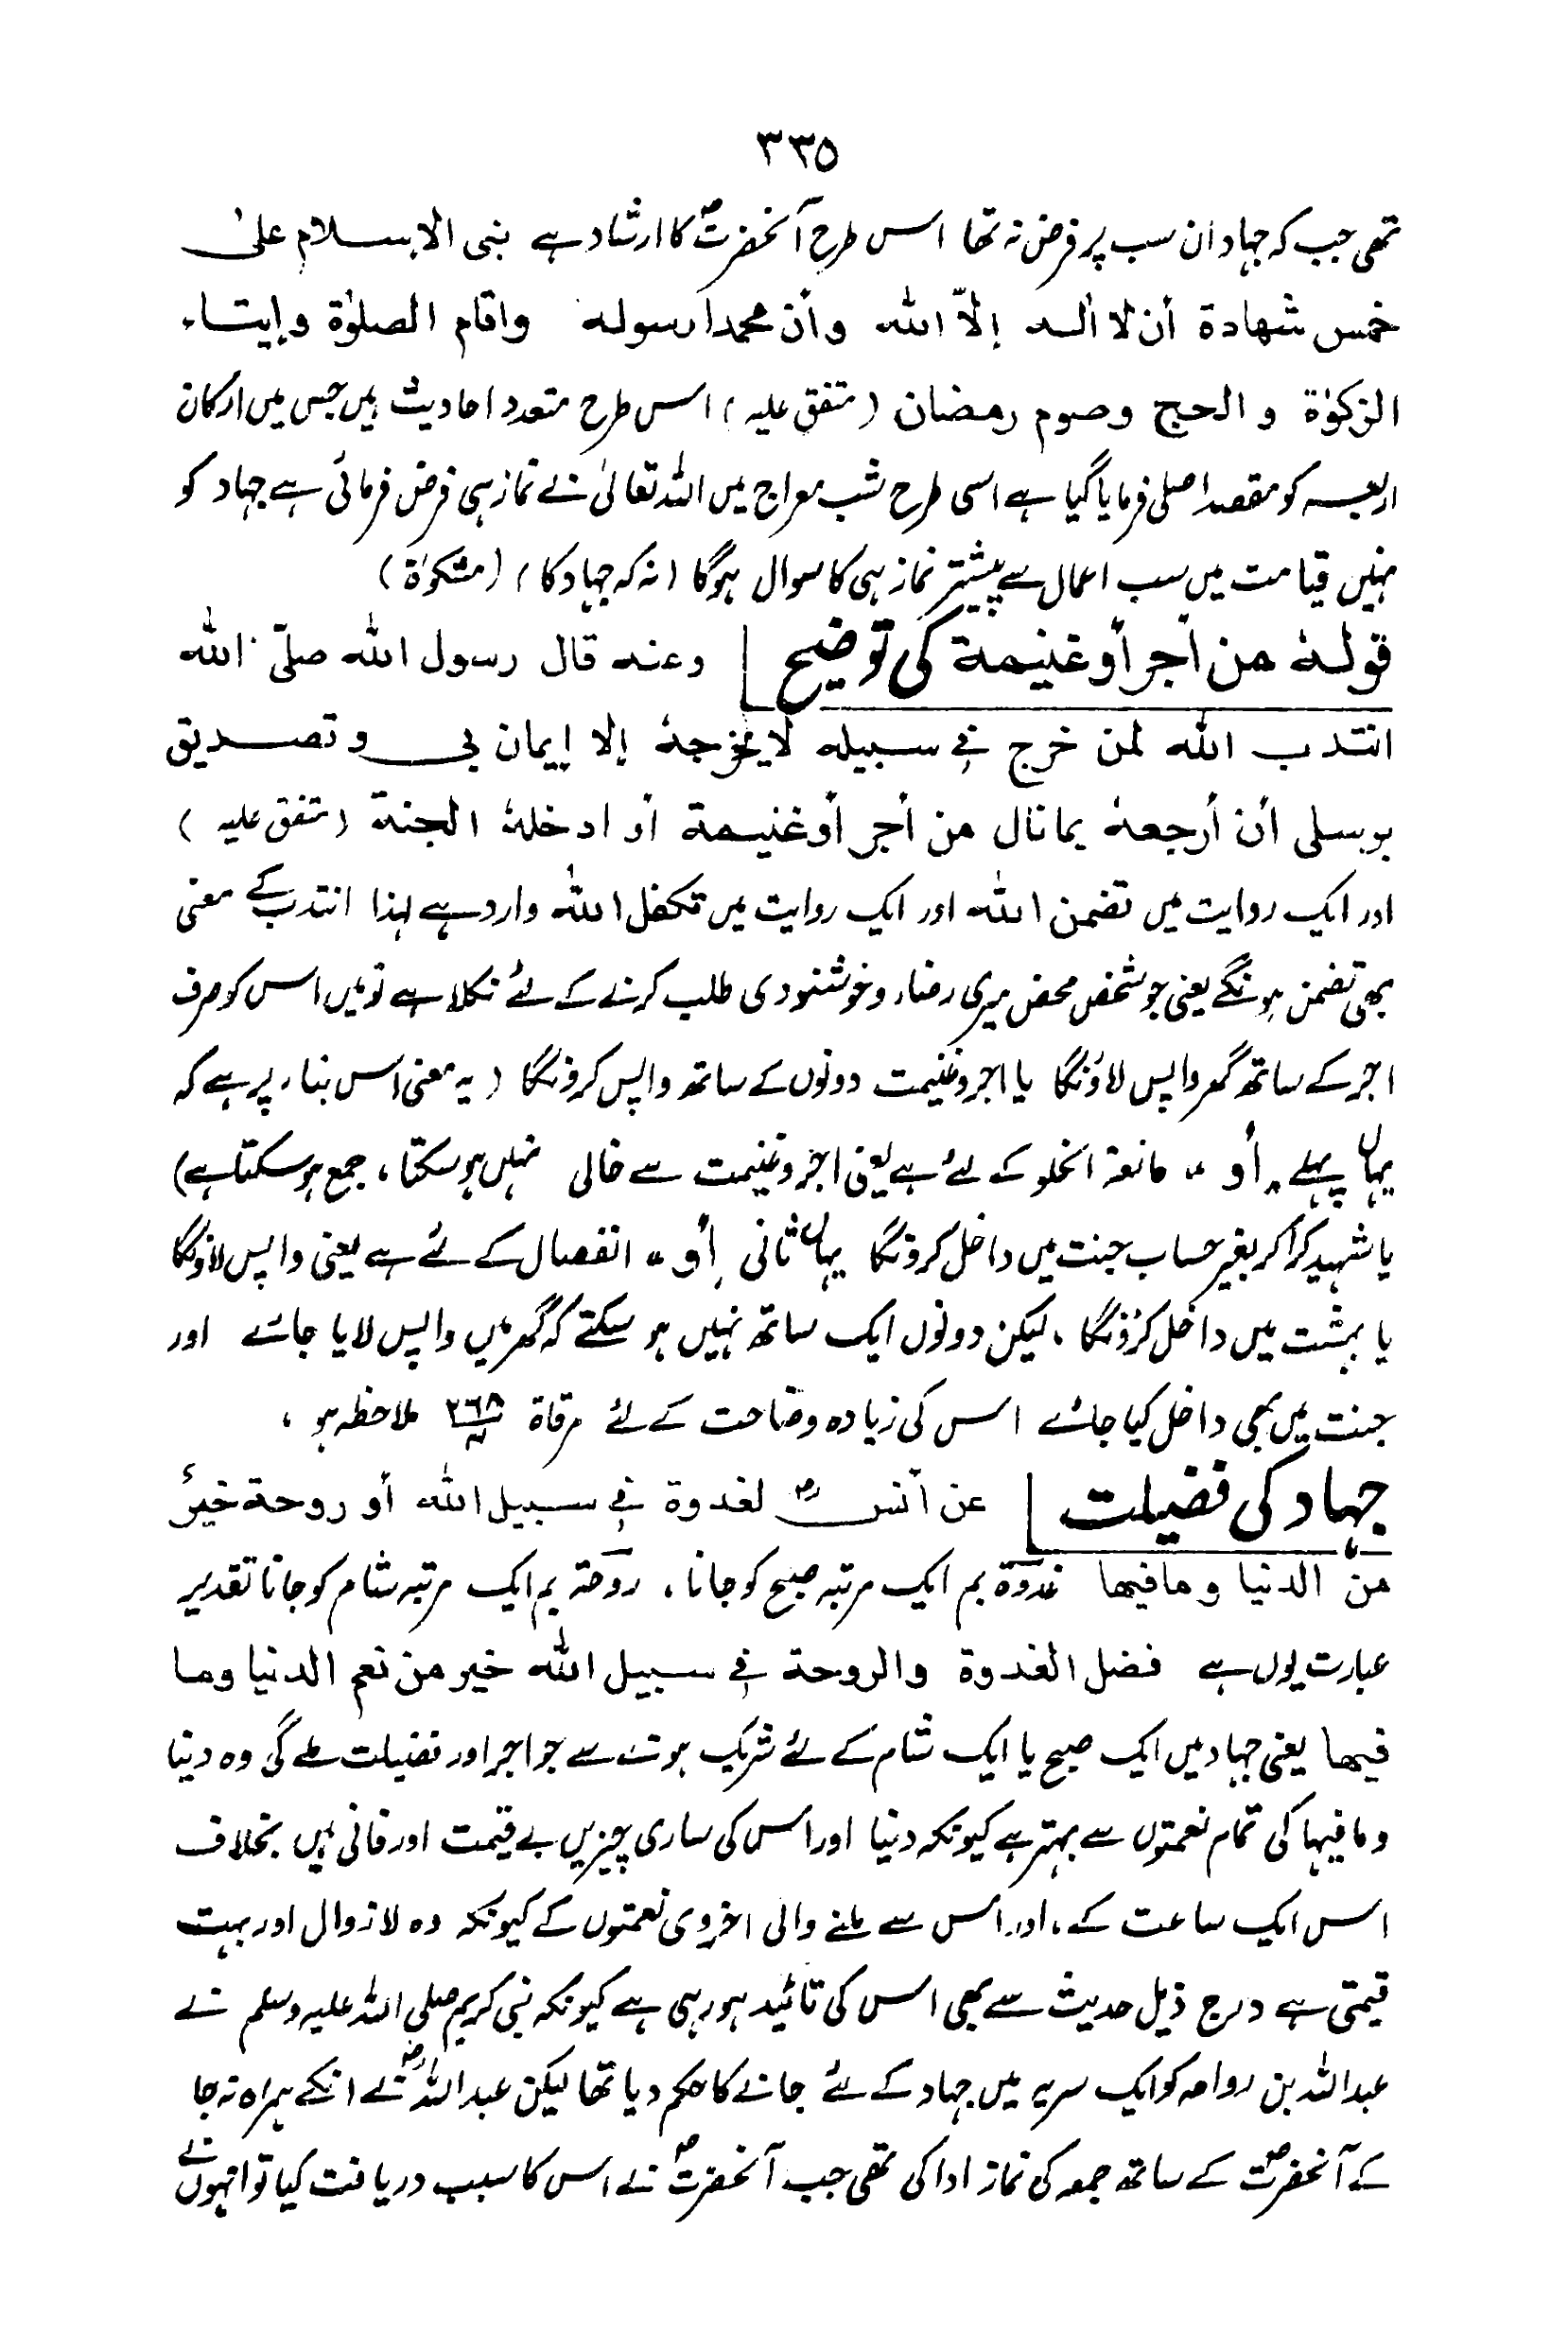 ٣٣٥
تھی جب کہ جہاد ان سب پر فرض نہ تھا اس طرح آنحضرتؐ کا ارشاد ہے بنی الاسلام علیٰ
خمس شهادة أن لا اله إلّا الله وأن محمداً رسوله واقام الصلوٰة وإيتاء
الزكوٰة والحج وصوم رمضان (متفق علیہ) اس طرح متعدد احادیث ہیں جس میں ارکان
اربعہ کو مقصد اصلی فرمایا گیا ہے اسی طرح شب معراج میں اللہ تعالیٰ نے نماز ہی فرض فرمائی ہے جہاد کو
نہیں قیامت میں سب اعمال سے پیشتر نماز ہی کا سوال ہوگا (نہ کہ جہاد کا) (مشکوٰۃ)
قولهٗ من أجر أو غنيمة کی توضیح | وعنه قال رسول الله صلّی الله
انتدب الله لمن خرج في سبيله لا يخرجهٗ إلا إيمان بي وتصديق
برسلی أن أرجعهٗ بما نال من أجر أو غنيمة أو ادخلهٗ الجنة (متفق علیہ)
اور ایک روایت میں تضمن اللہ اور ایک روایت میں تکفل اللہ وارد ہے لہذا انتدب کے معنی
بھی تضمن ہونگے یعنی جو شخص محض میری رضاء و خوشنودی طلب کرنے کے لئے نکلا ہے تو میں اس کو صرف
اجر کے ساتھ گھر واپس لاؤنگا یا اجر و غنیمت دونوں کے ساتھ واپس کرونگا (یہ معنی اس بناء پر ہے کہ
یہاں پہلے "أو" مانعۃ الخلو کے لئے ہے یعنی اجر و غنیمت سے خالی نہیں ہو سکتا، جمع ہو سکتا ہے)
یا شہید کرا کر بغیر حساب جنت میں داخل کرونگا یہاں ثانی "أو" انفصال کے لئے ہے یعنی واپس لاؤنگا
یا بہشت میں داخل کرونگا، لیکن دونوں ایک ساتھ نہیں ہو سکتے کہ گھر میں واپس لایا جائے اور
جنت میں بھی داخل کیا جائے اس کی زیادہ وضاحت کے لئے مرقاۃ ملاحظہ ہو،
جہاد کی فضیلت | عن أنس رض لغدوة في سبيل الله أو روحة خيرٌ
من الدنيا وما فيها غدوۃ بم ایک مرتبہ صبح کو جانا، روحۃ بم ایک مرتبہ شام کو جانا تقدیر
عبارت یوں ہے فضل الغدوة والروحة في سبيل الله خير من نعم الدنيا وما
فيها یعنی جہاد میں ایک صبح یا ایک شام کے لئے شریک ہونے سے جو اجر اور فضیلت ملے گی وہ دینا
ومافیہا کی تمام نعمتوں سے بہتر ہے کیونکہ دنیا اور اس کی ساری چیزیں بے قیمت اور فانی ہیں بخلاف
اس ایک ساعت کے، اور اس سے ملنے والی اخروی نعمتوں کے کیونکہ وہ لازوال اور بہت
قیمتی ہے درج ذیل حدیث سے بھی اس کی تائید ہو رہی ہے کیونکہ نبی کریم صلی اللہ علیہ وسلم نے
عبداللہ بن رواحہ کو ایک سریہ میں جہاد کے لئے جانے کا حکم دیا تھا لیکن عبداللہؓ نے انکے ہمراہ نہ جا
کے آنحضرتؐ کے ساتھ جمعہ کی نماز ادا کی تھی جب آنحضرتؐ نے اس کا سبب دریافت کیا تو انہوں نے